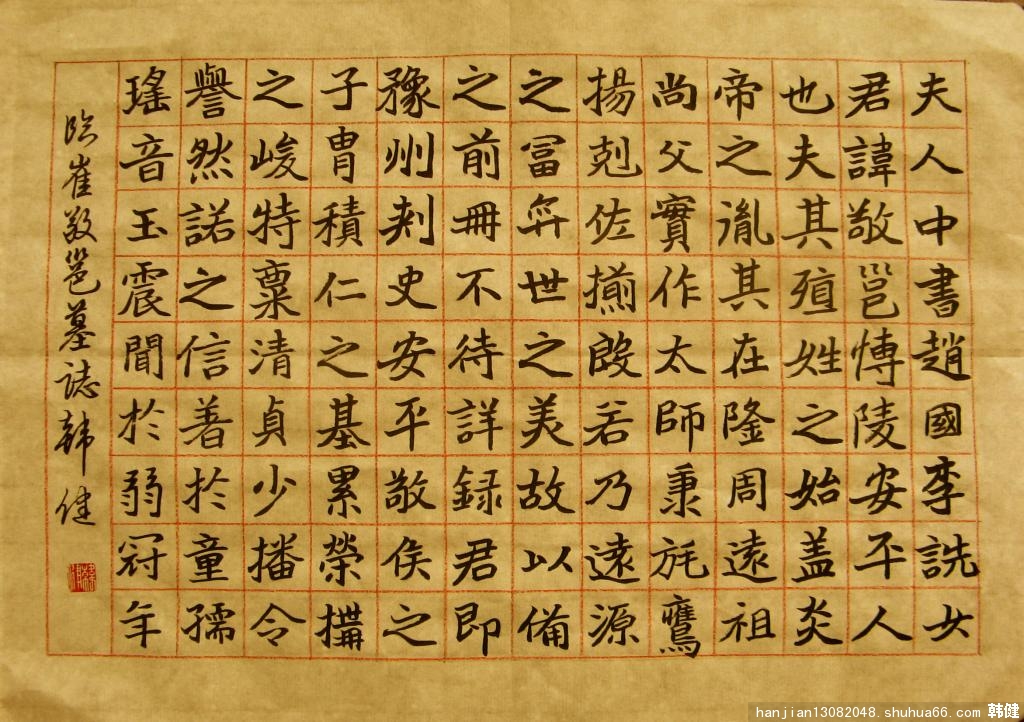 夫人中書趙國李詵女
君諱敬邕博陵安平人
也夫其殖姓之始蓋炎
帝之胤其在隆周遠祖
尚父實作太師秉旄鷹
揚剋佐揃殷若乃遠源
之富弈世之美故以備
之前冊不待詳録君即
豫州刾史安平敬侯之
子胄積仁之基累榮搆
之峻特稟清貞少播令
譽然諾之信著於童孺
瑤音玉震聞於弱冠年
臨崔敬邕墓誌韓健
hanjian13082048.shuhua66.com 韩健